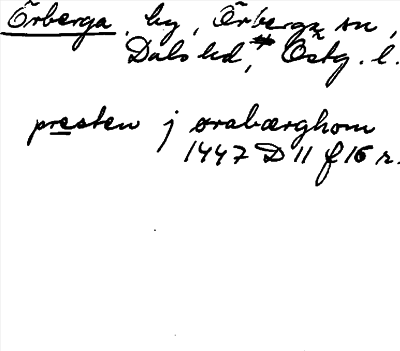 Örberga, by, Örberga sn,
Dals hd, Östg. l.
presten j ørabærghom
1447 D 11 f 16 r.